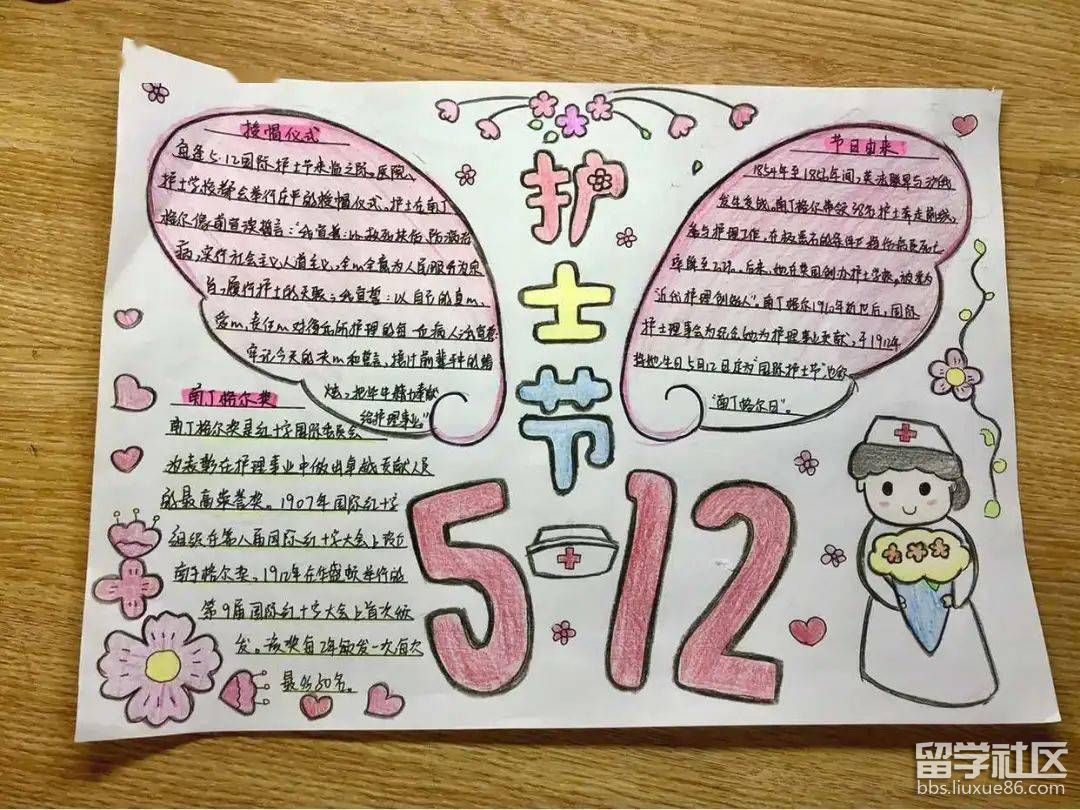 授帽仪式
意逢5·12国际护士节来临之际,医院、
护士学校都会举行庄严的授帽仪式。护士在南丁
格尔像前宣读誓言:"我宣誓:以救死扶伤、防病治
病,实行社会主义人道主义,全心全意为人民服务为宗
旨,履行护士的天职;我宣誓:以自己的真心、
爱心,责任心对待我所护理的每一位病人;我宣誓
牢记今天的决心和誓言,接过前辈手中的蜡
烛,把毕生精力奉献
给护理事业。"
节日由来
1854年至1856年间,英法联军与沙俄
发生战争。南丁格尔带领38名护士奔走前线,
参与护理工作,在
率降至2.2%。后来,她在英国创办护士学校,被誉为
"近代护理创始人"。南丁格尔1910年逝世后,国际
护士理事会为纪念她为护理事业贡献,于1912年
将她生日5月12日定为"国际护士节"
"南丁格尔日"。
护士节
5-12
南丁格尔奖
南丁格尔奖是红十字国际委员会
为表彰在护理事业中做出卓越贡献人员
的最高荣誉奖。1907年国际红十字
组织在第八届国际红十字大会上设立
南丁格尔奖,1912年在华盛顿举行的
第9届国际红十字大会上首次颁
发。该奖每2年颁发一次每次
最多50名。
留学社区
bbs.liuxue86.com